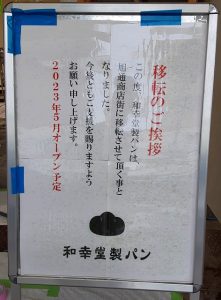 移転のご挨拶
この度、和幸堂製パンは
通商店街に移転させて頂く事と
なりました。
今後ともご支援を賜りますよう
お願い申し上げます。
2023年5月オープン予定
和幸堂製パン